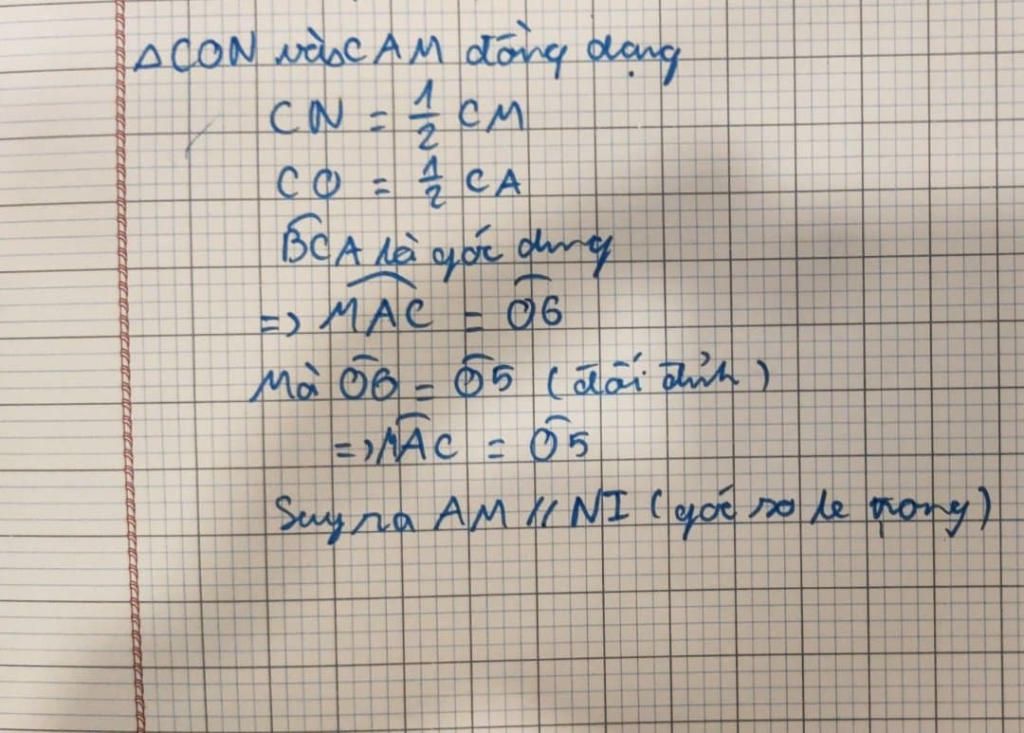 △CON và △CAM đồng dạng
CN = 1/2 CM
CO = 1/2 CA
B̂CA là góc chung
=> M͡AC = Ô6
Mà Ô6 = Ô5 (đối đỉnh)
=> M͡AC = Ô5
Suy ra AM // NI (góc so le trong)